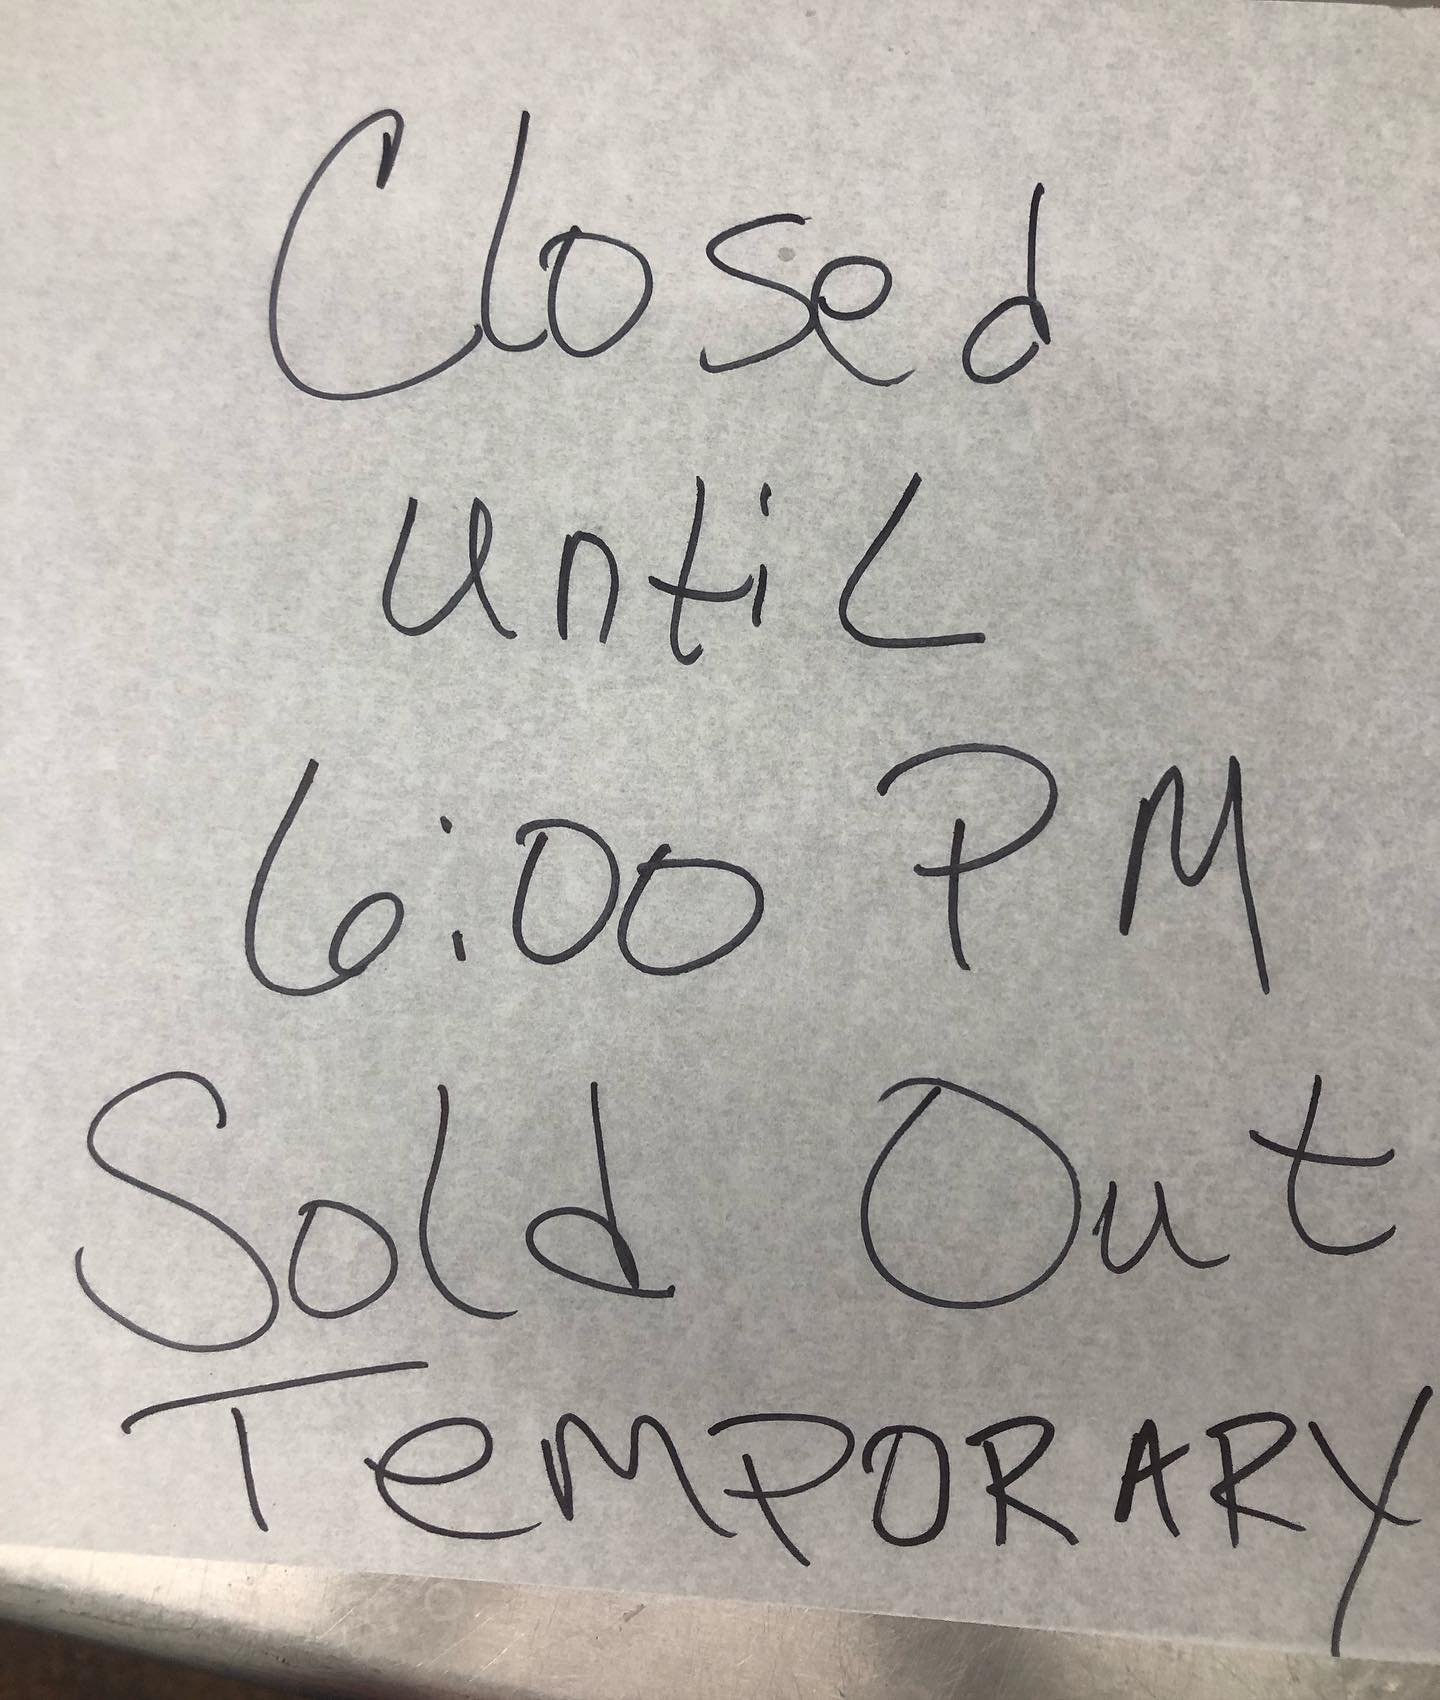 Closed
until
6:00 PM
Sold Out
TeMPORARY